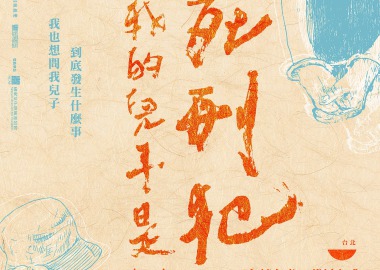 死刑犯
我的兒子是
到底發生什麼事
我也想問我兒子
台北